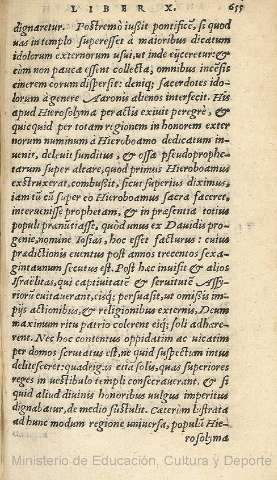 LIBER X. 655
dignaretur. Postremò iussit pontificē, si quod
vas in templo superesset à maioribus dicatum
idolorum externorum usui, ut inde eijceretur: &
cùm non pauca essent collecta, omnibus incēsis
cinerem eorum dispersit: deniq; sacerdotes ido-
lorum à genere Aaronis alienos interfecit. His
apud Hierosolyma peractis exiuit peregrè, &
quicquid per totam regionem in honorem exter
norum numinum à Hieroboamo dedicatum in-
uenit, deleuit funditus, & ossa pseudoprophe-
tarum super altare, quod primus Hieroboamus
exstruxerat, combussit, sicut superius diximus,
iam tū cū super eo Hieroboamus sacra faceret,
interuenisse prophetam, & in præsentia totius
populi prænūtiasse, quòd unus ex Dauidis pro-
genie, nomine Iosias, hoc esset facturus: cuius
prædictionis euentus post annos trecentos sexa-
gintaunum secutus est. Post hæc inuisit & alios
Israëlitas, qui captiuitatē & seruitutē Assy-
riorū euitauerant, eisq; persuasit, ut omißis im-
pijs actionibus, & religionibus externis, Deum
maximum ritu patrio colerent eiq; soli adhære-
rent. Nec hoc contentus oppidatim ac uicatim
per domos scrutatus est, ne quid suspectum intus
delitesceret: quadrigis ecta solis, quas superiores
reges in uestibulo templi consecrauerant, & si
quid aliud diuinis honoribus vulgus imperitus
dignabatur, de medio sustulit. Cæterùm lustrata
ad hunc modum regione uniuersa, populū Hie-
rosolyma
Ministerio de Educación, Cultura y Deporte